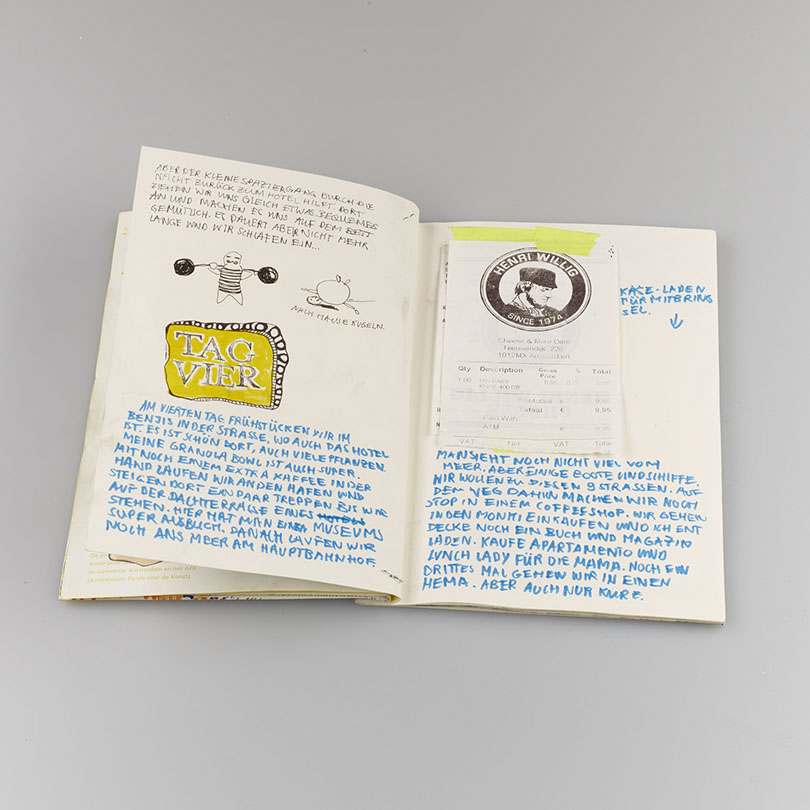 ABER DER KLEINE SPAZIERGANG DURCH DIE
NACHT ZURÜCK ZUM HOTEL HILFT. DORT
ZIEHEN WIR UNS GLEICH ETWAS BEQUEMES
AN UND MACHEN ES UNS AUF DEM BETT
GEMÜTLICH. ES DAUERT ABER NICHT MEHR
LANGE UND WIR SCHLAFEN EIN...
NACH HAUSE KUGELN.
TAG
VIER
AM VIERTEN TAG FRÜHSTÜCKEN WIR IM
BENJIS IN DER STRASSE, WO AUCH DAS HOTEL
IST. ES IST SCHÖN DORT, AUCH VIELE PFLANZEN.
MEINE GRANOLA BOWL IST AUCH SUPER.
MIT NOCH EINEM EXTRA KAFFEE IN DER
HAND LAUFEN WIR AN DEN HAFEN UND
STEIGEN DORT EIN PAAR TREPPEN BIS WIR
AUF DER DACHTERRASSE EINES HOTELS
STEHEN. HIER HAT MAN EINEN MUSEUMS
SUPER AUSBLICK. DANACH LAUFEN WIR
NOCH ANS MEER AM HAUPTBAHNHOF.
de Gemeente Amsterdam en het AFK
(Amsterdams Fonds voor de Kunst)
HENRI WILLIG
SINCE 1974
Cheese & More Dam
Nieuwendijk 226
1012MX Amsterdam
Qty Description Gross Price % Total
1.00 9,95
Subtotaal € 9,95
Totaal € 9,95
Paid With
ATM € 9,95
VAT Net VAT Total
KÄSE-LADEN
FÜR MITBRING
SEL.
MAN SIEHT NOCH NICHT VIEL VOM
MEER. ABER EINIGE BOOTE UND SCHIFFE.
WIR WOLLEN ZU DIESEN 9 STRASSEN. AUF
DEM WEG DAHIN MACHEN WIR NOCH
STOP IN EINEM COFFEESHOP. WIR GEHEN
IN DEN MONKI EINKAUFEN UND ICH ENT
DECKE NOCH EIN BUCH UND MAGAZIN
LADEN. KAUFE APARTAMENTO UND
LUNCH LADY FÜR DIE MAMA. NOCH EIN
DRITTES MAL GEHEN WIR IN EINEN
HEMA. ABER AUCH NUR KURZ.